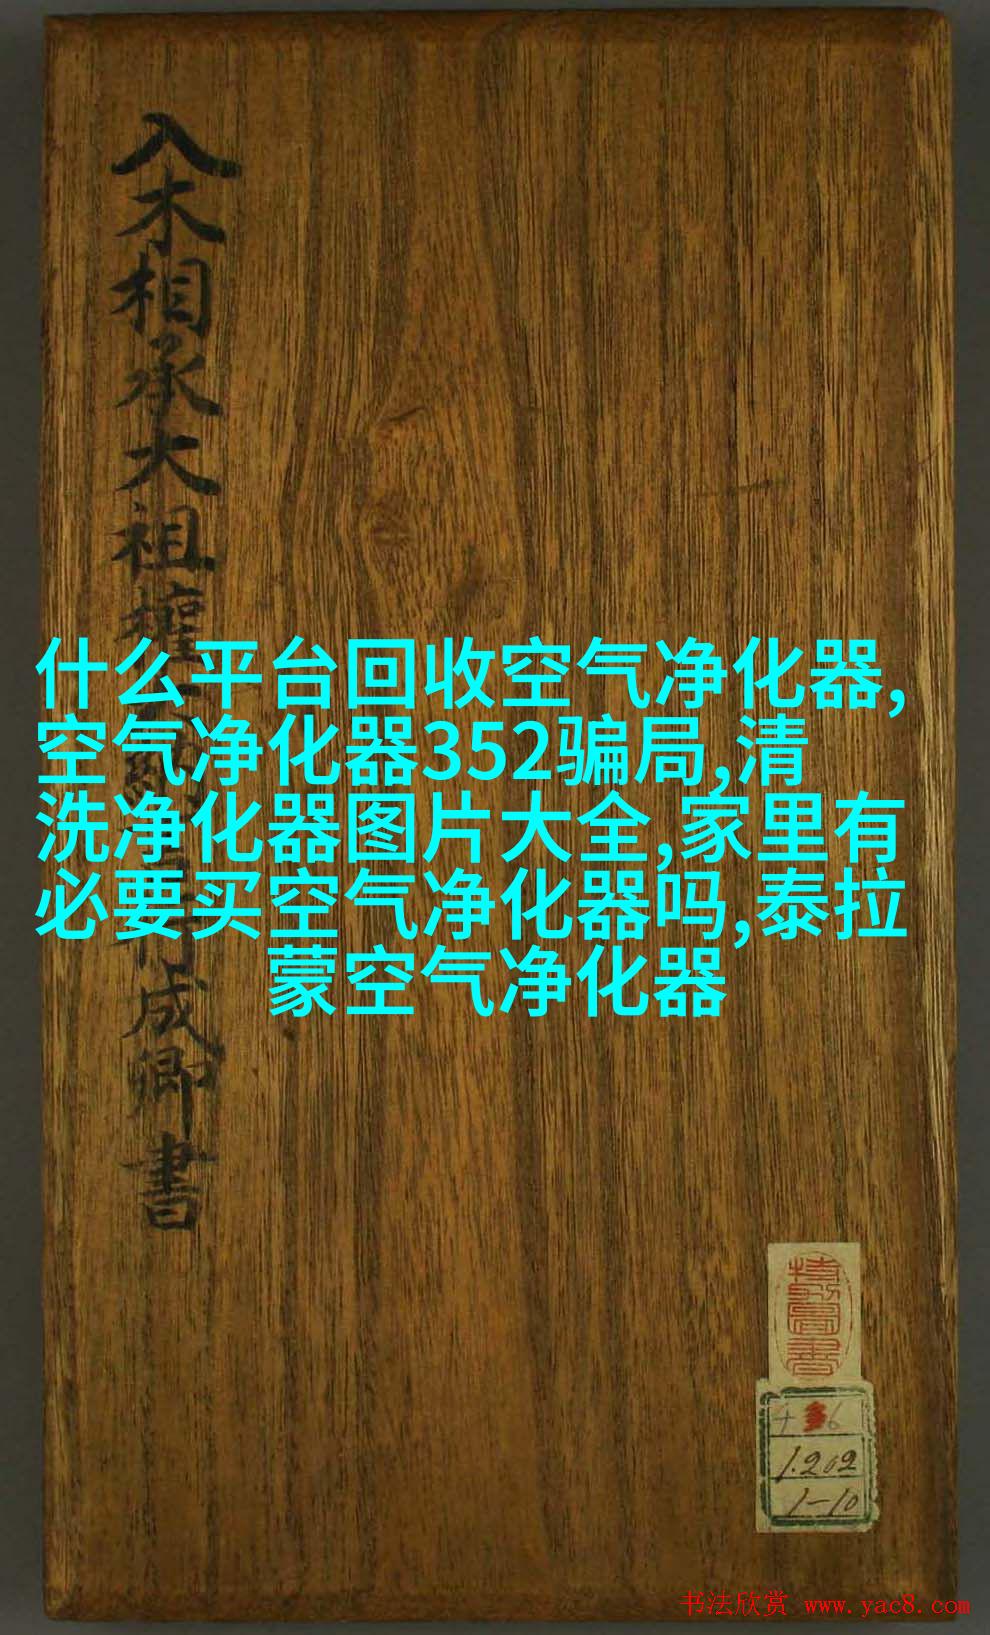 入木相承大祖權
成卿書
什么平台回收空气净化器,
空气净化器352骗局,清
洗净化器图片大全,家里有
必要买空气净化器吗,泰拉
蒙空气净化器
1.202
1-10
书法欣赏 www.yac8.com